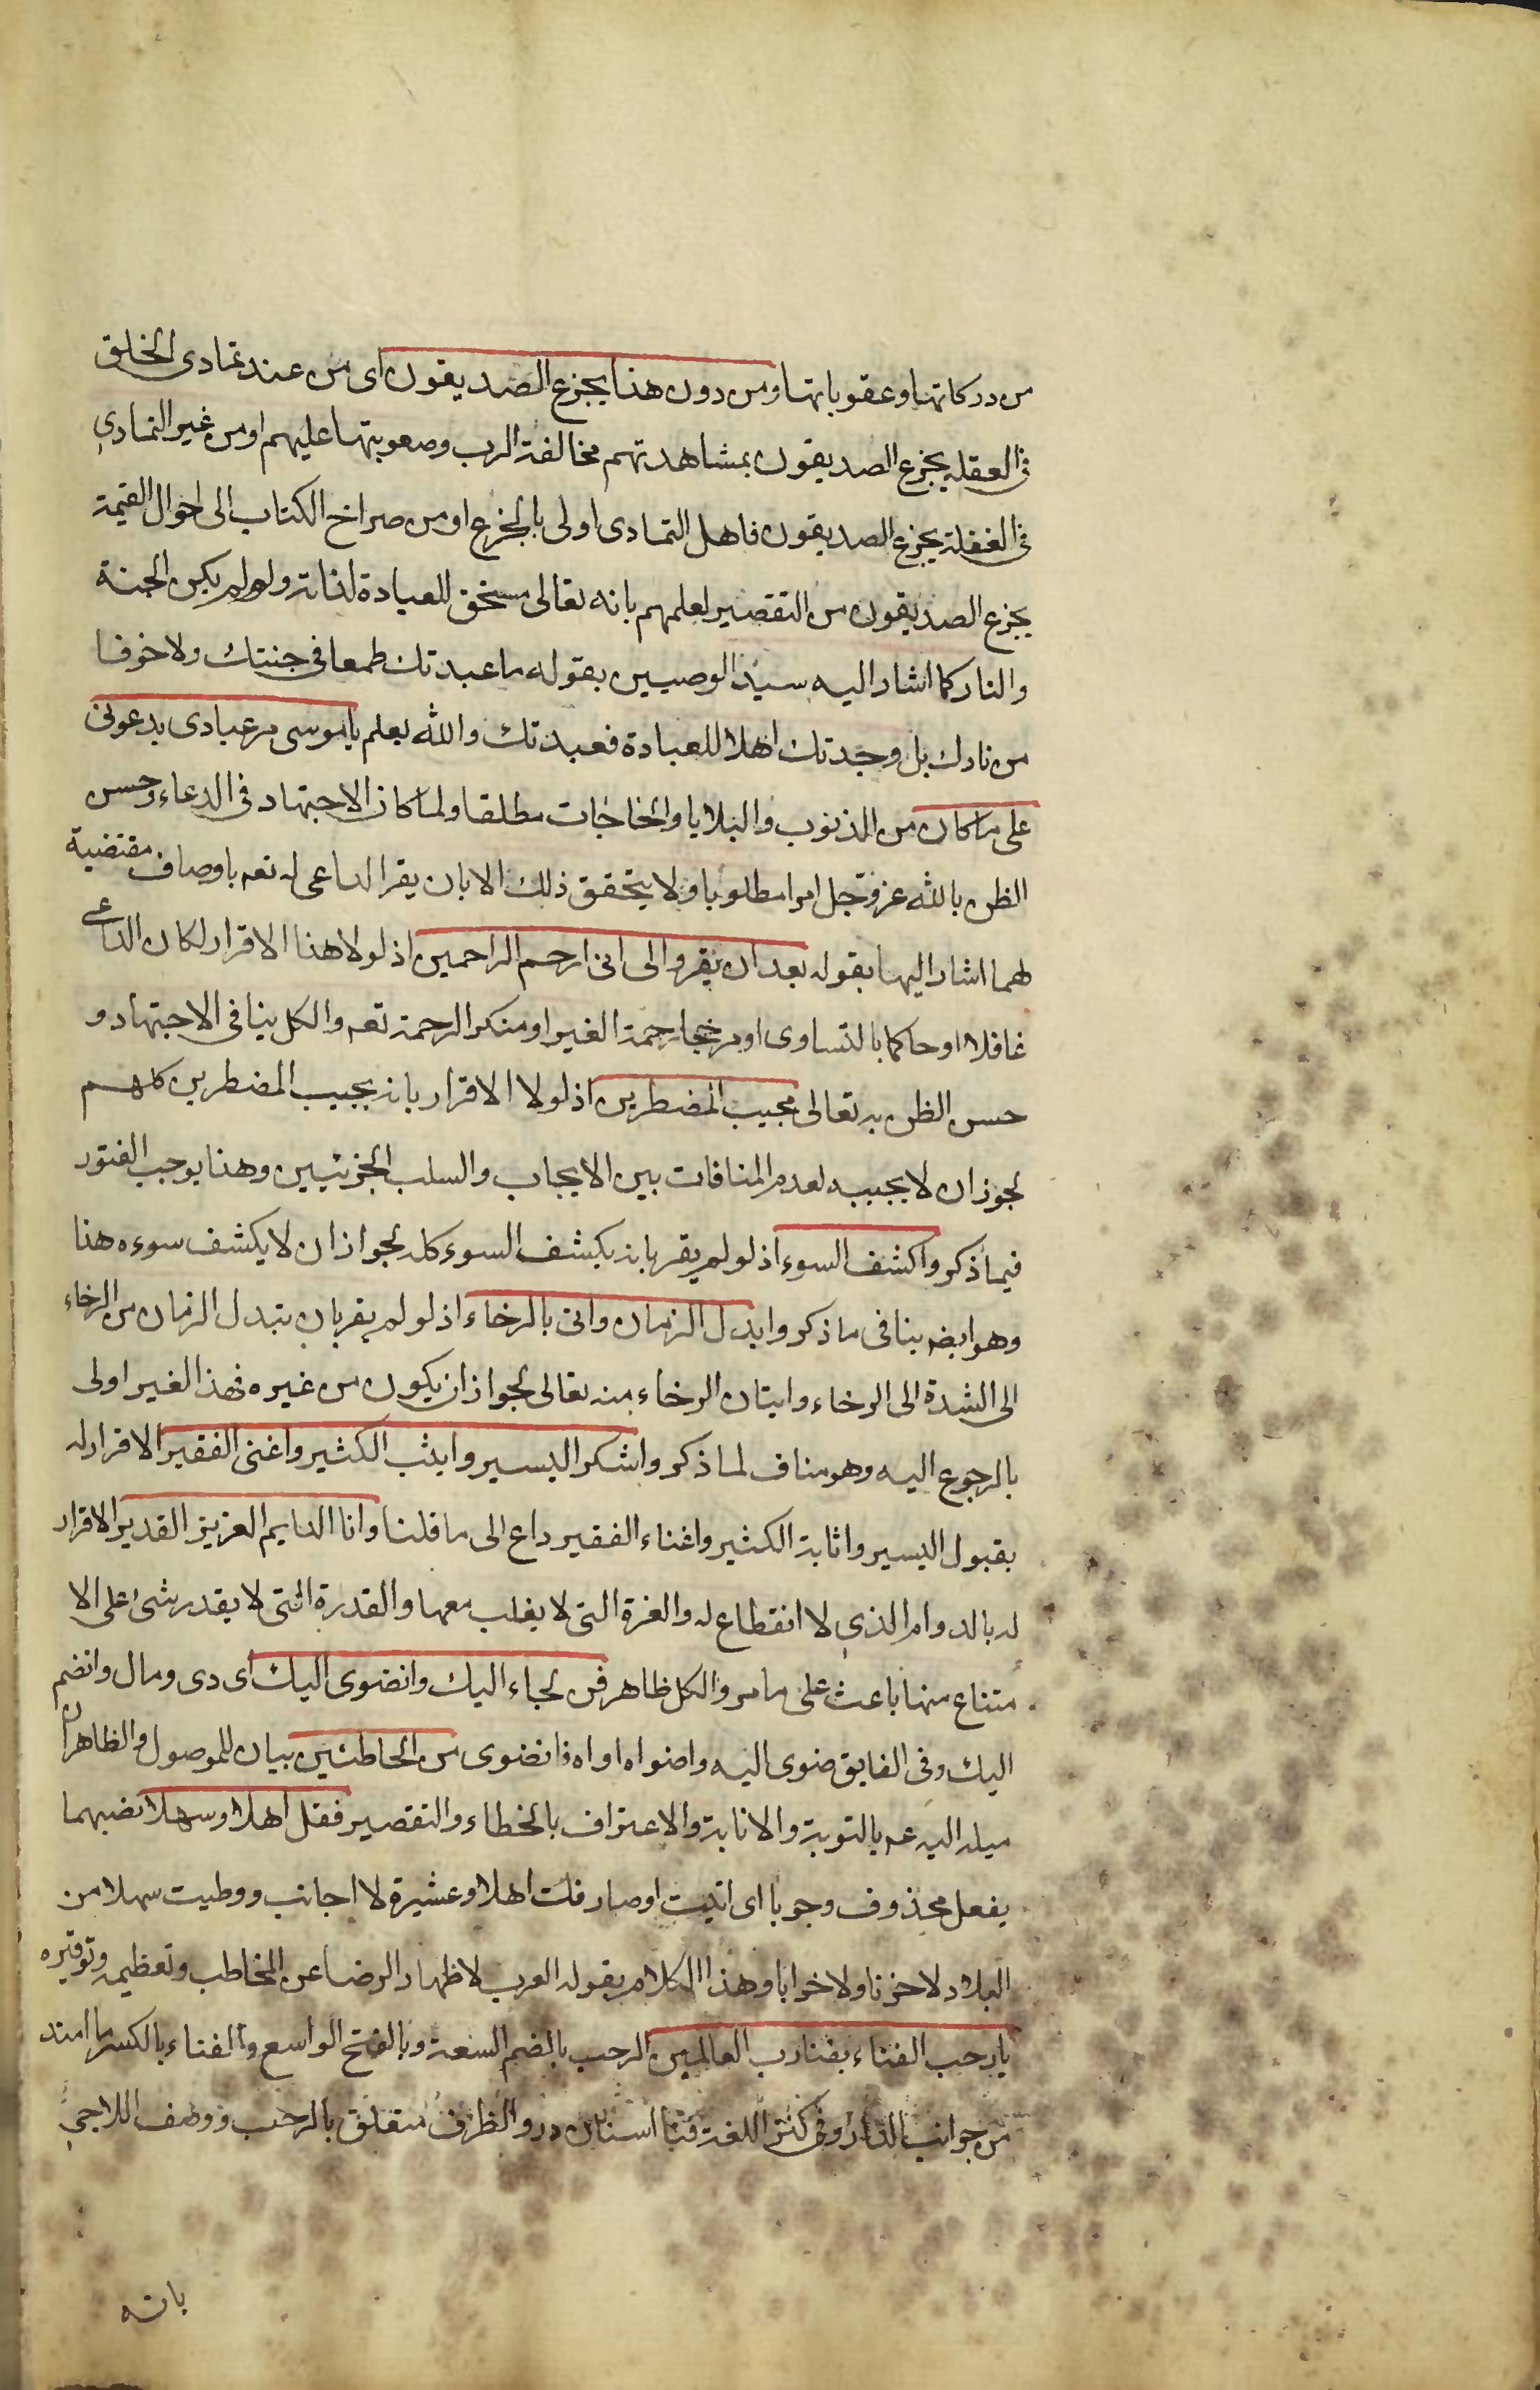 من دركاتها وعقوباتها ومن دون هذا يجزع الصديقون اى من عند تمادى الخلق
فى العقله يجزع الصديقون بمشاهدتهم مخالفة الرب وصعوبتها عليهم او من غير التمادى
فى الغفلة يجزع الصديقون فاهل التمادى اولى بالجزع او من صراخ الكتاب الى احوال القيمة
يجزع الصديقون من التقصير لعلمهم بانه تعالى مستحق للعبادة لذاته ولو لم يكن الجنة
والنار كما اشار اليه سيد الوصيين بقوله ما عبدتك طمعا فى جنتك ولا خوفا
من نارك بل وجدتك اهلا للعبادة فعبدتك والله يعلم يا موسى مر عبادى يدعونى
على ما كان من الذنوب والبلايا والحاجات مطلقا ولما كان الاجتهاد فى الدعاء وحسن
الظن بالله عز وجل امرا مطلوبا ولا يتحقق ذلك الا بان يقر الداعى له تعه باوصاف مقتضية
لهما اشار اليها بقوله بعد ان يقروا لى انى ارحم الراحمين اذ لولا هذا الاقرار لكان الداعى
غافلا او حاكما بالتساوى او مرجحا رحمة الغير او منكر الرحمة تعه والكل ينافى الاجتهاد و
حسن الظن به تعالى مجيب المضطرين اذ لولا الاقرار بانه يجيب المضطرين كلهم
لجوز ان لا يجيبه لعدم المنافات بين الايجاب والسلب الجزئيين وهذا يوجب الفتور
فيما ذكر واكشف السوء اذ لو لم يقر بانه يكشف السوء كله لجواز ان لا يكشف سوءه هذا
وهو ايضه ينافى ما ذكر وابدل الزمان واتى بالرخاء اذ لو لم يقر بان تبدل الزمان من الرخاء
الى الشدة الى الرخاء وايتان الرخاء منه تعالى لجواز ان يكون من غيره فهذا الغير اولى
بالرجوع اليه وهو مناف لما ذكر واشكر اليسير واثيب الكثير واغنى الفقير الاقرار له
بقبول اليسير واثابة الكثير واغناء الفقير داع الى ما قلنا وانا الدايم العزيز القدير الاقرار
له بالدوام الذى لا انقطاع له والعزة التى لا يغلب معها والقدرة التى لا يقدر شئ على الا
متناع منها باعث على ما مر والكل ظاهر فمن لجاء اليك وانضوى اليك اى دى ومال وانضم
اليك وفى الفايق ضوى اليه واضواه اواه فانضوى من الخاطئين بيان للموصول والظاهر ان
ميله اليه عه بالتوبة والانابة والاعتراف بالخطاء والتقصير فقل اهلا وسهلا نصبهما
بفعل محذوف وجوبا اى اتيت او صادفت اهلا وعشيرة لا اجانب ووطيت سهلا من
البلاد لا حزنا ولا خرابا وهذا الكلام يقوله العرب لاظهار الرضا عن المخاطب وتعظيمه وتوقيره
يا رحب الفناء بفناء رب العالمين الرحب بالضم السعة وبالفتح الواسع والفناء بالكسر ما امتد
من جوانب الدار وفى كنز اللغة فنا استان در والظرف متعلق بالرحب ووصف اللاجى
بانه